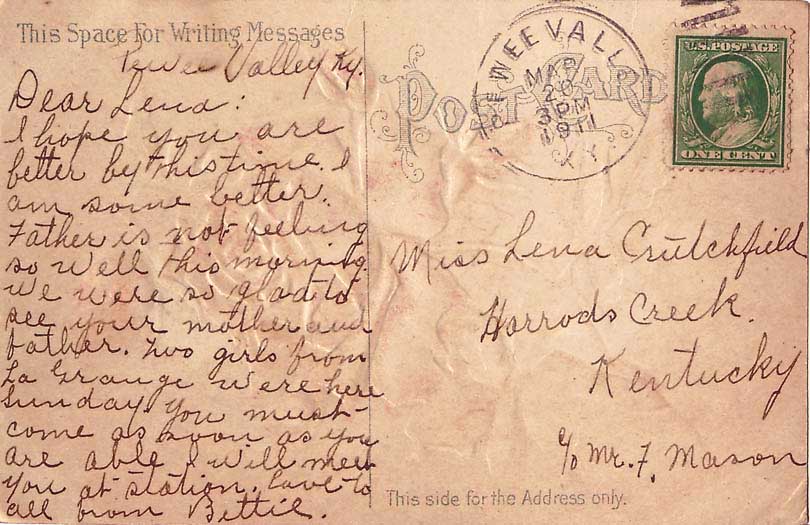 This Space For Writing Messages
Pewee Valley Ky.
Dear Lena:
I hope you are
better by this time. I
am some better.
Father is not feeling
so well this morning.
We were so glad to
see your mother and
father. Two girls from
La Grange were here
Sunday. You must
come as soon as you
are able I will meet
you at station. Love to
all from Bettie.
POST CARD
PEWEE VALLEY
MAR
20
3PM
1911
KY.
U.S. POSTAGE
ONE CENT
Miss Lena Crutchfield
Harrods Creek.
Kentucky
c/o Mr. F. Mason
This side for the Address only.